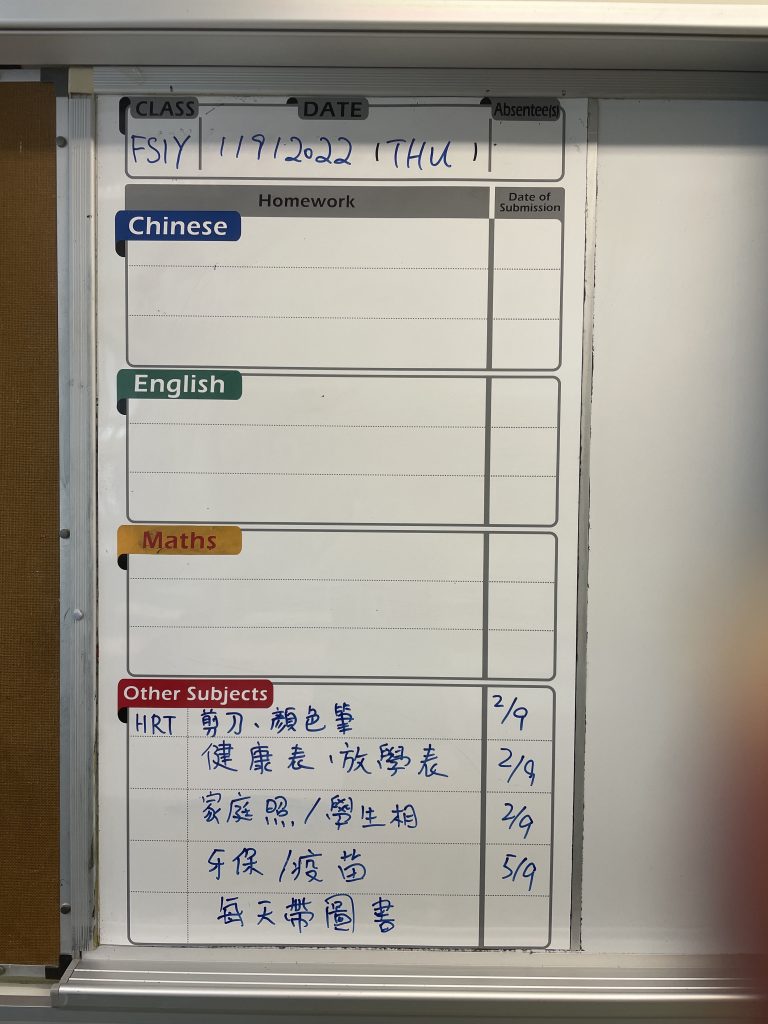 CLASS DATE Absentee(s)
FS1Y 1/9/2022 (THU)
Homework Date of Submission
Chinese
English
Maths
Other Subjects
HRT 剪刀、顏色筆 2/9
健康表、放學表 2/9
家庭照/學生相 2/9
牙保/疫苗 5/9
每天帶圖書